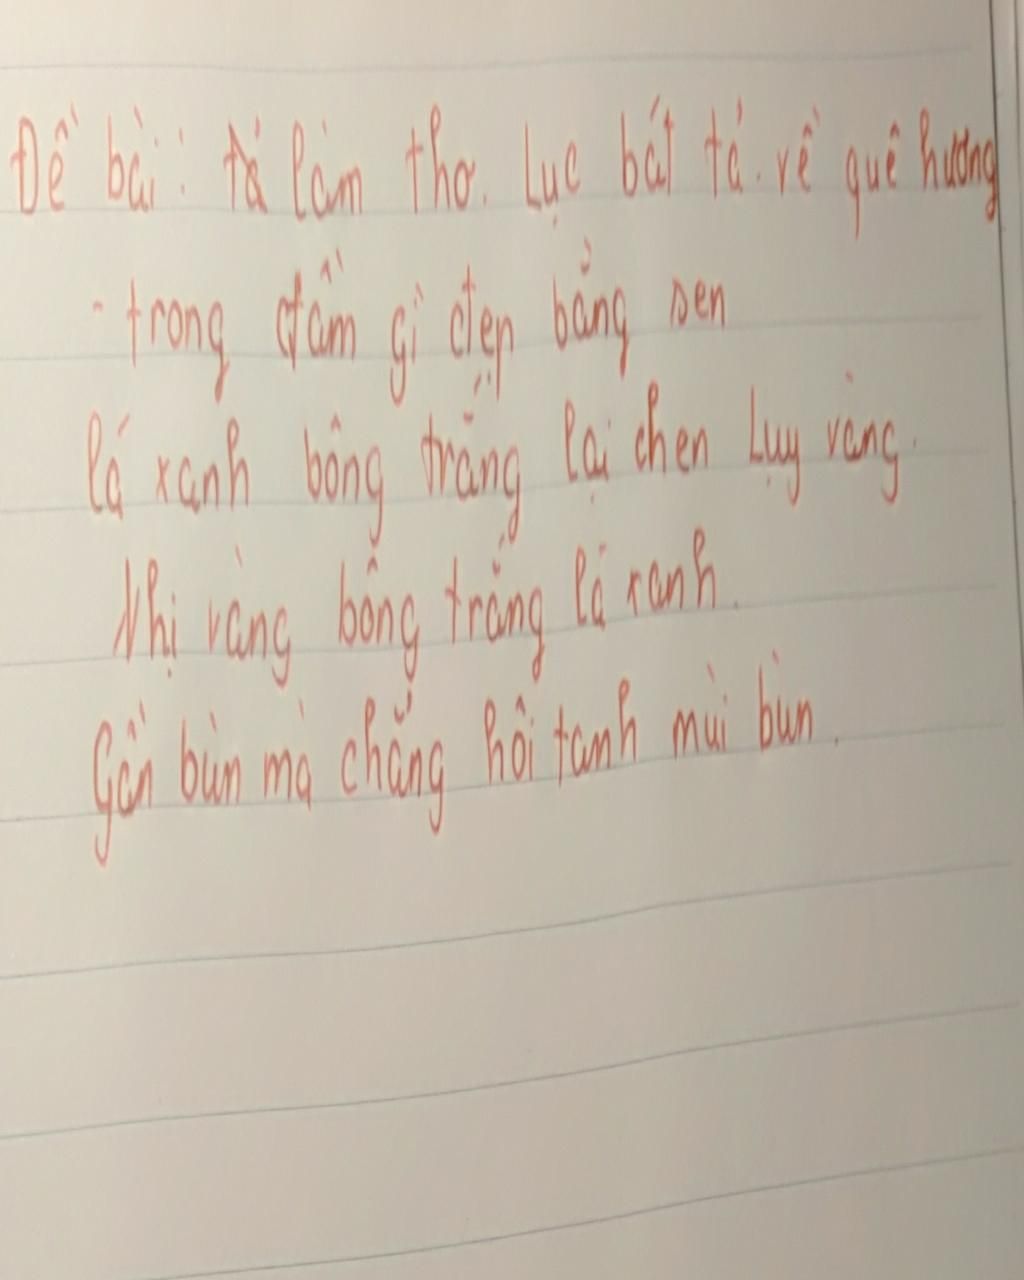 Đề bài: tả làm thơ. Lục bát tả. về quê hương
- trong đầm gì đẹp bằng sen
lá xanh bông trắng lại chen Lụy vàng.
Nhị vàng bông trắng lá xanh.
Gần bùn mà chẳng hôi tanh mùi bùn.